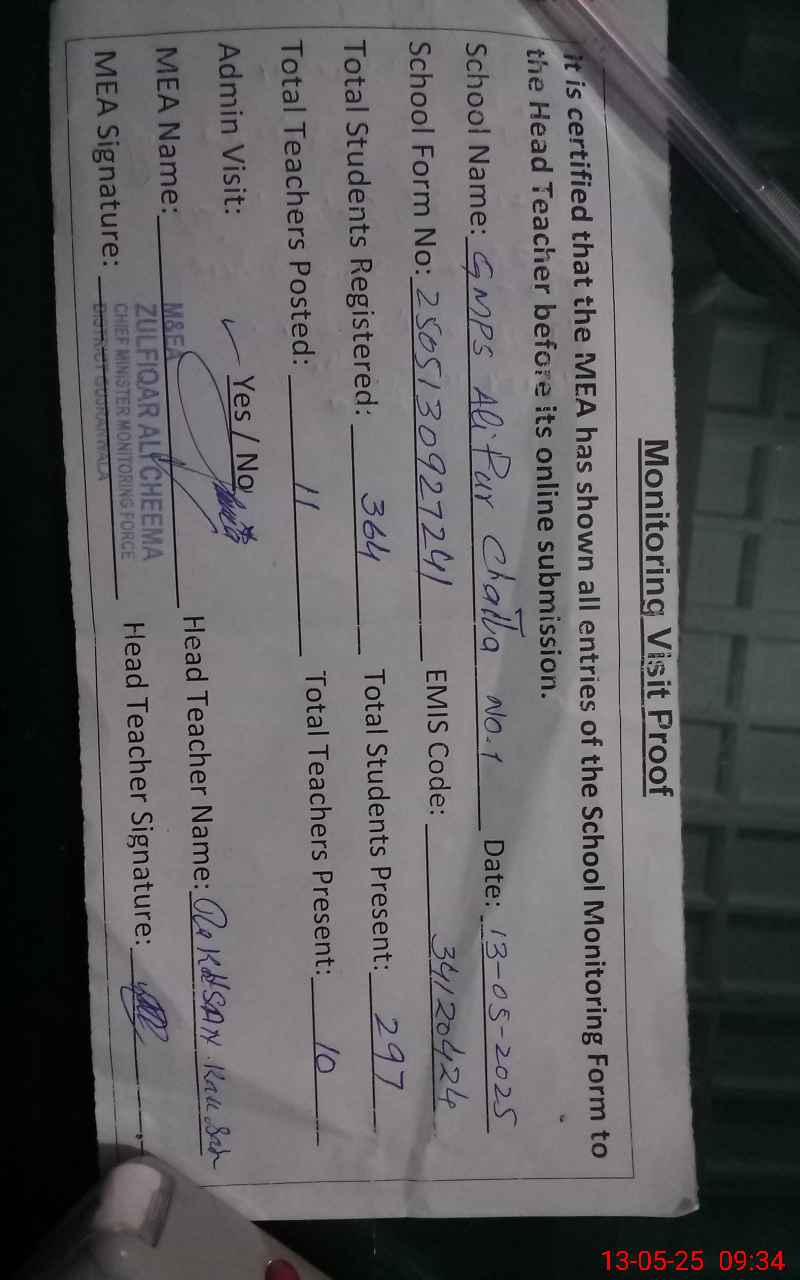 Monitoring Visit Proof
it is certified that the MEA has shown all entries of the School Monitoring Form to
the Head Teacher before its online submission.
School Name: GMPS Ali Pur Chatta No.1 Date: 13-05-2025
School Form No: 2505130927241 EMIS Code: 34120424
Total Students Registered: 364 Total Students Present: 297
Total Teachers Posted: 11 Total Teachers Present: 10
Admin Visit: ✓ Yes / No
MEA Name: Head Teacher Name: Kausar
MEA Signature: Head Teacher Signature:
M&EA
ZULFIQAR ALI CHEEMA
CHIEF MINISTER MONITORING FORCE
DISTRICT GUJRANWALA
13-05-25 09:34